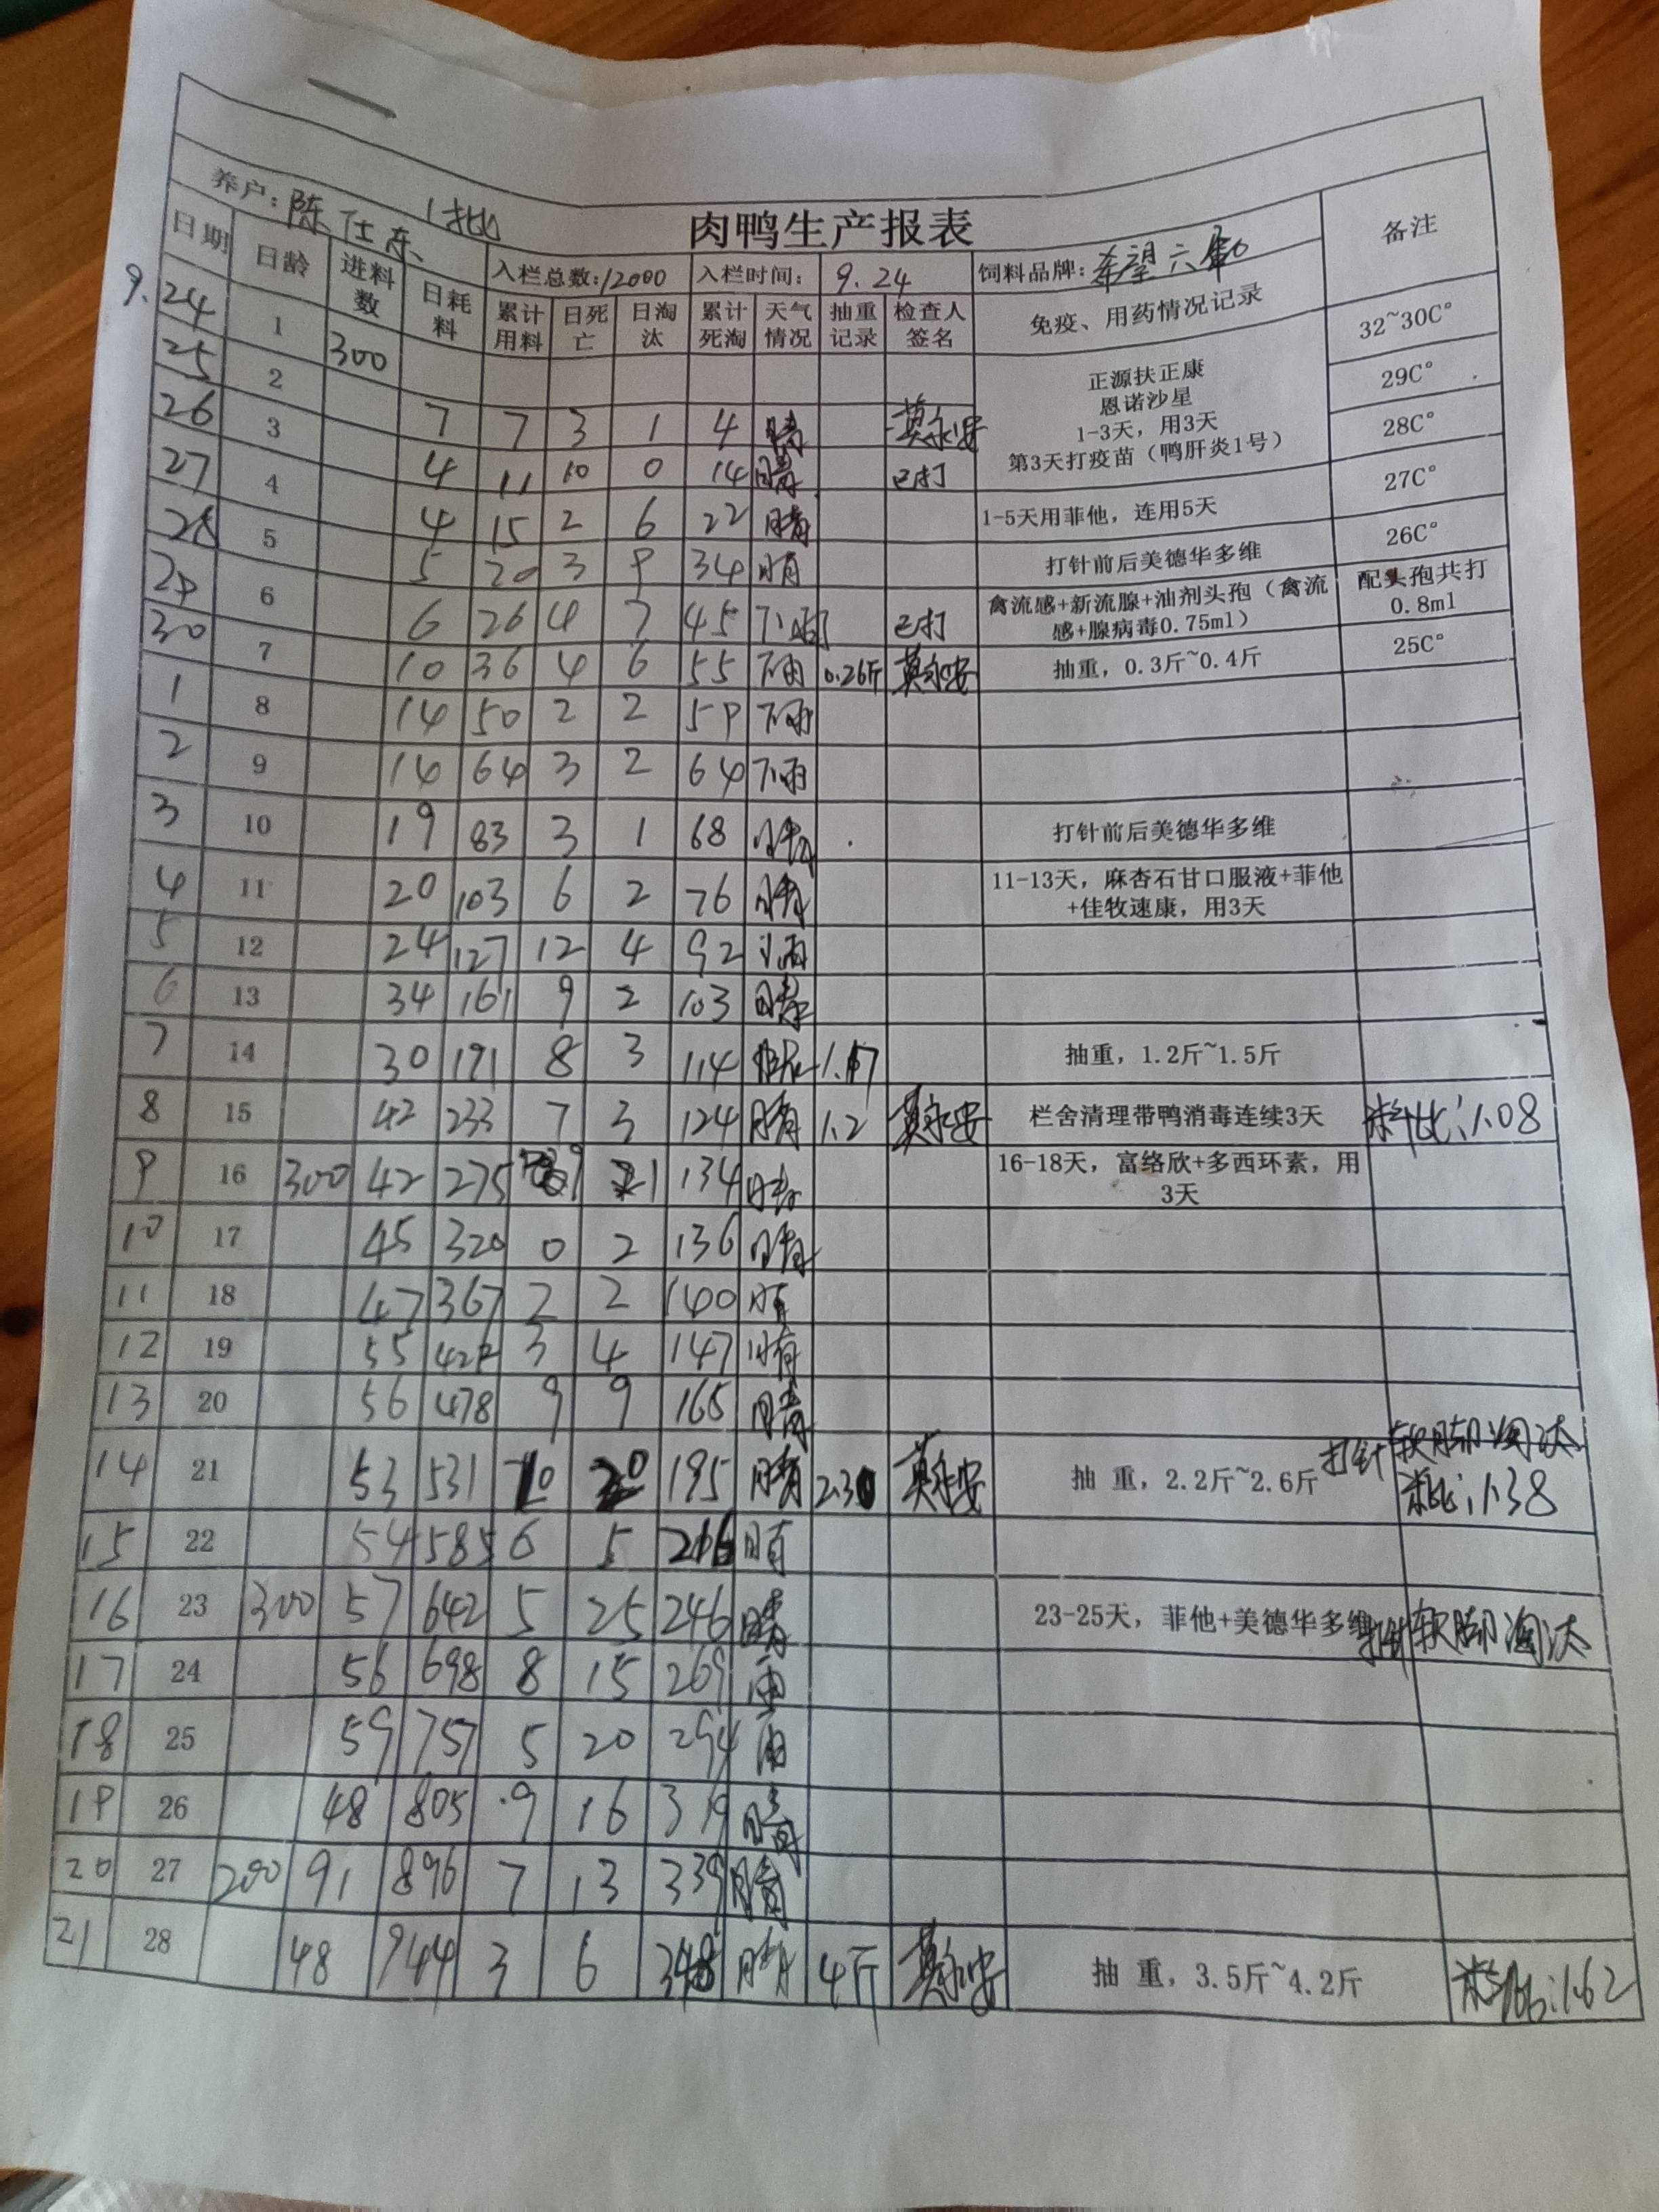 肉鸭生产报表
养户: 陈仕东 1批 入栏总数: 12000 入栏时间: 9.24 饲料品牌: 希望六和 备注
日期 日龄 进料数 日耗料 累计用料 日死亡 日淘汰 累计死淘 天气情况 抽重记录 检查人签名 免疫、用药情况记录
9.24 1 300 7 7 3 1 4 晴 莫永安 正源扶正康 32~30C°
恩诺沙星
1-3天，用3天
第3天打疫苗（鸭肝炎1号）
25 2 4 11 10 0 14 晴 已打 29C°
26 3 4 15 2 6 22 晴 28C°
27 4 5 20 3 9 34 晴 1-5天用菲他，连用5天 27C°
28 5 6 26 4 7 45 下雨 已打 打针前后美德华多维 26C°
29 6 10 36 4 6 55 下雨 0.26斤 莫永安 禽流感+新流腺+油剂头孢（禽流感+腺病毒0.75ml） 配头孢共打0.8ml
30 7 14 50 2 2 59 下雨 抽重，0.3斤~0.4斤 25C°
1 8 14 64 3 2 64 下雨
2 9
3 10 19 83 3 1 68 晴 打针前后美德华多维
4 11 20 103 6 2 76 晴 11-13天，麻杏石甘口服液+菲他+佳牧速康，用3天
5 12 24 127 12 4 92 雨
6 13 34 161 9 2 103 晴
7 14 30 191 8 3 114 1.17 抽重，1.2斤~1.5斤
8 15 42 233 7 3 124 晴 1.2 莫永安 栏舍清理带鸭消毒连续3天 料比:1.08
9 16 300 42 275 9 1 134 晴 16-18天，富络欣+多西环素，用3天
10 17 45 320 0 2 136 晴
11 18 47 367 2 2 140 晴
12 19 55 422 3 4 147 晴
13 20 56 478 9 9 165 晴
14 21 53 531 10 20 195 晴 2.30 莫永安 抽 重，2.2斤~2.6斤 打针软脚淘汰
料比:1.38
15 22 54 585 6 5 216 晴
16 23 300 57 642 5 25 246 晴 23-25天，菲他+美德华多维 打针软脚淘汰
17 24 56 698 8 15 269 雨
18 25 59 757 5 20 294 雨
19 26 48 805 9 16 319 晴
20 27 200 91 896 7 13 339 晴
21 28 48 944 3 6 348 晴 4斤 莫永安 抽 重，3.5斤~4.2斤 料比:1.62